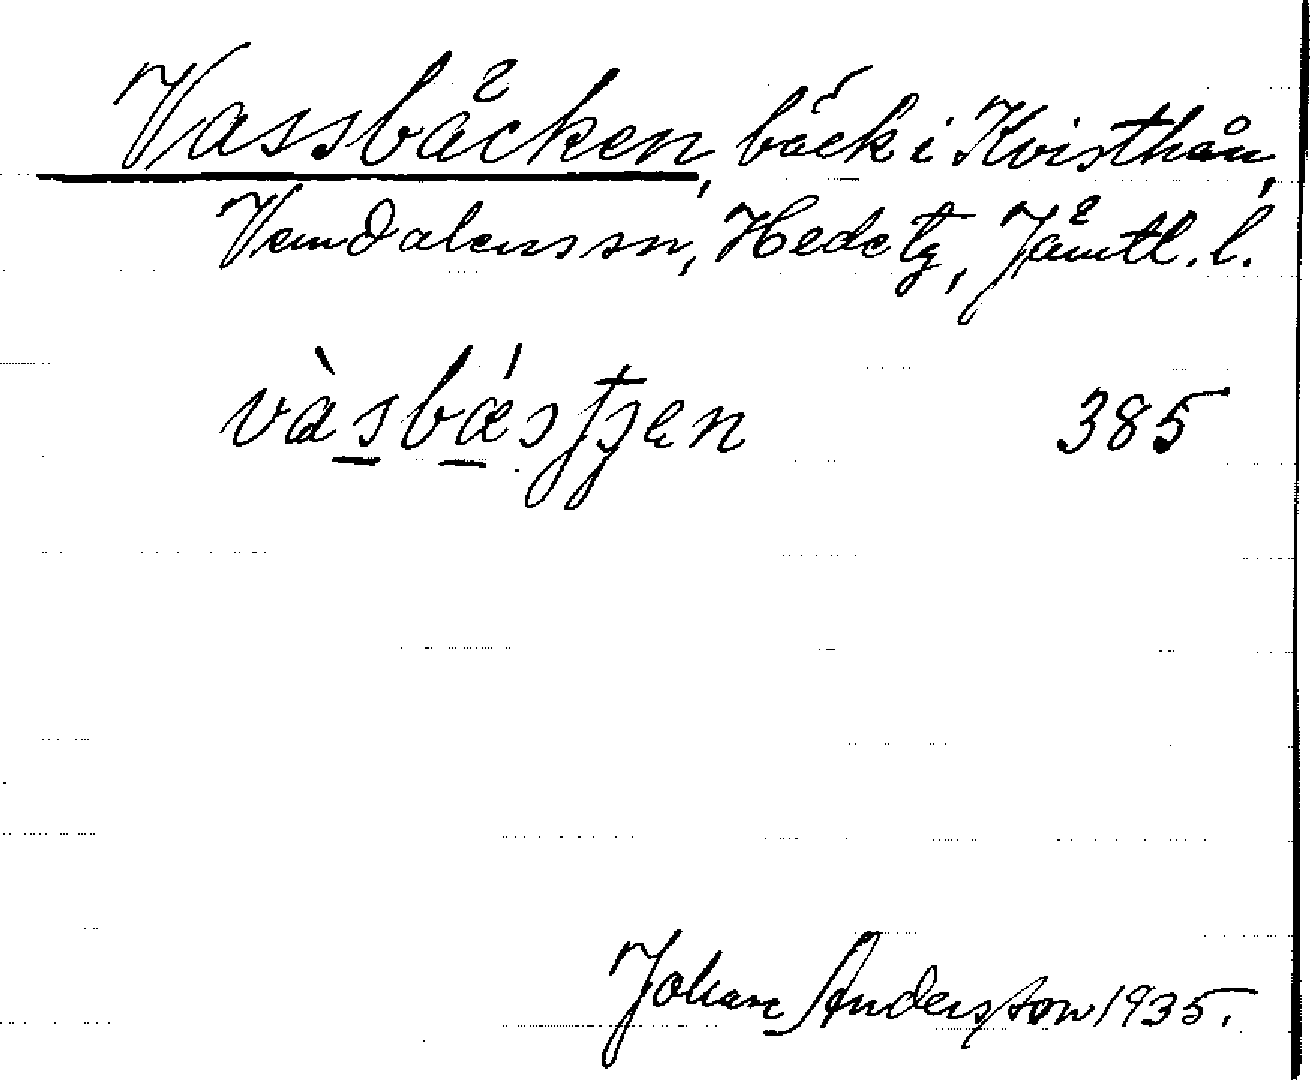 Vassbäcken, bäck i Kvisthån,
Vemdalens sn, Hede tg, Jämtl. l.
vàsbǽsʃtʃen 385
Johan Andersson 1935.